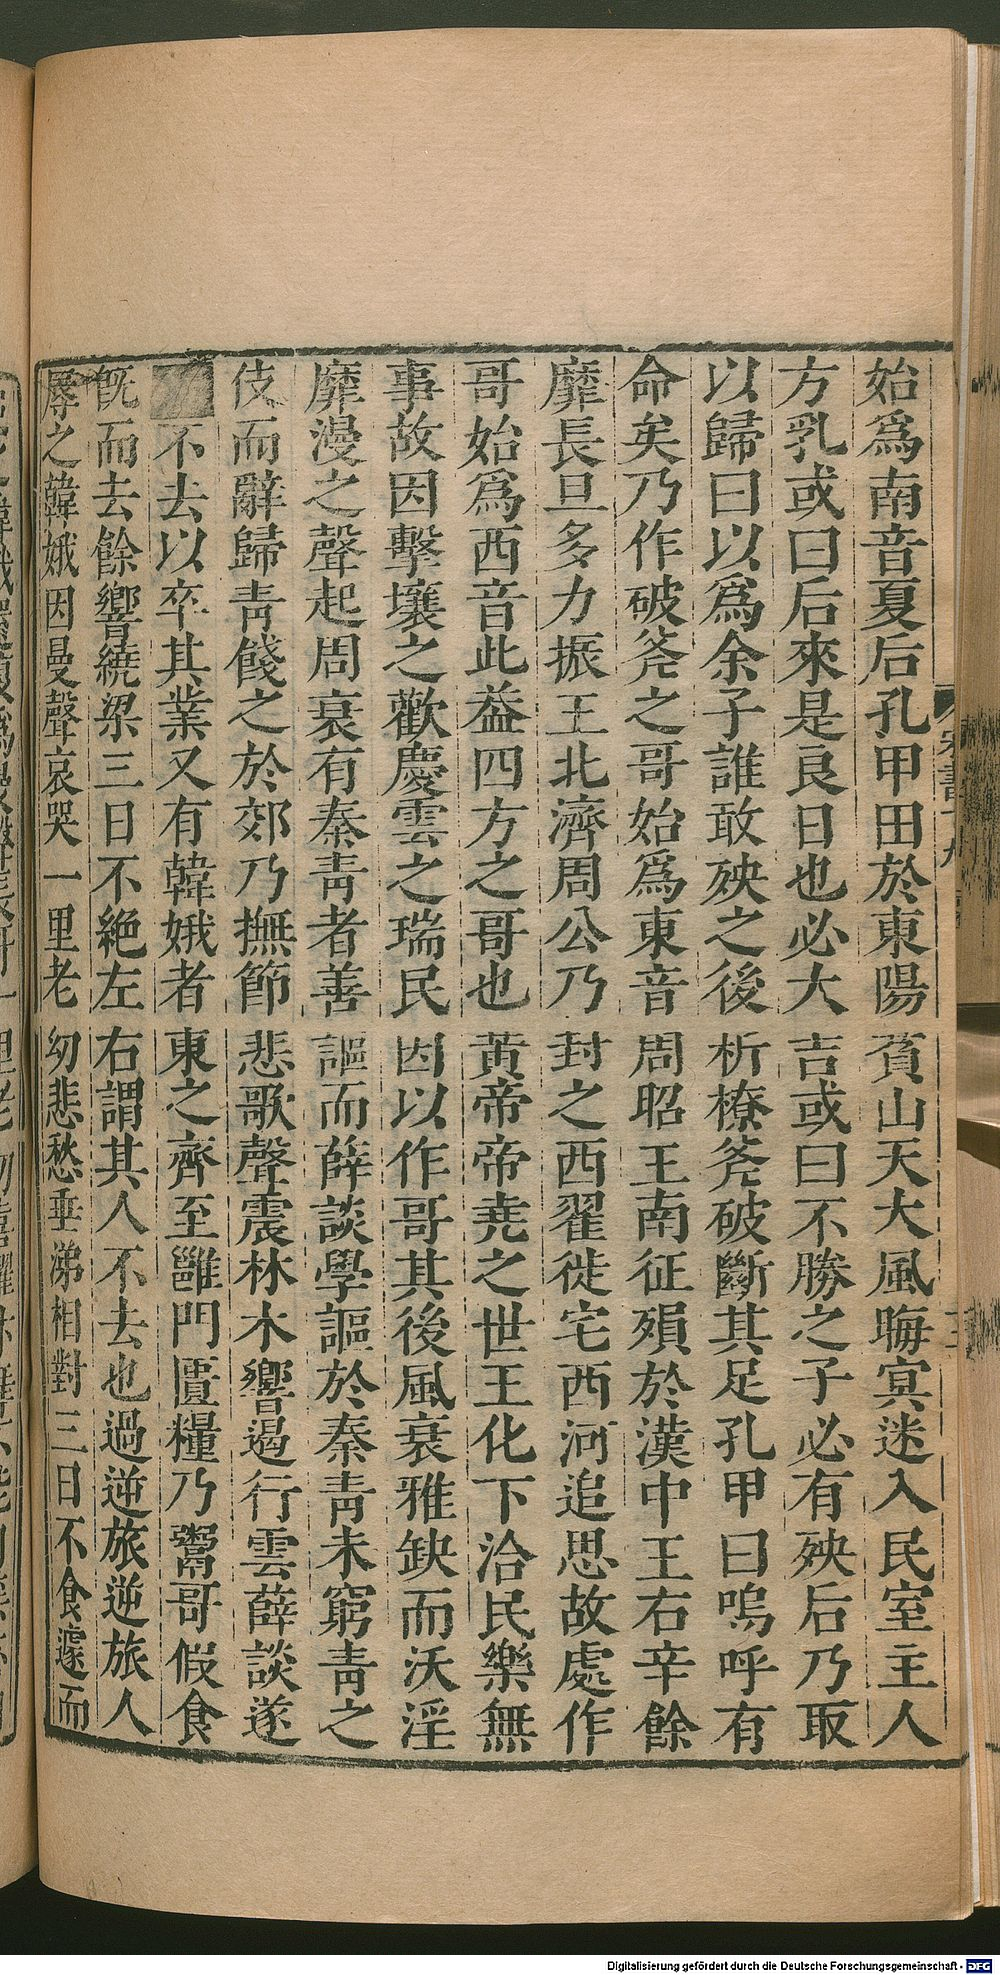 始爲南音夏后孔甲田於東陽萯山天大風晦冥迷入民室主人
方乳或曰后來是良日也必大吉或曰不勝之子必有殃后乃取
以歸曰以爲余子誰敢殃之後析橑斧破斷其足孔甲曰嗚呼有
命矣乃作破斧之哥始爲東音周昭王南征殞於漢中王右辛餘
靡長且多力振王北濟周公乃封之西翟徙宅西河追思故處作
哥始爲西音此蓋四方之哥也黃帝帝堯之世王化下洽民樂無
事故因擊壤之歡慶雲之瑞民因以作哥其後風衰雅缺而沃淫
靡漫之聲起周衰有秦青者善謳而薛談學謳於秦青未窮青之
伎而辭歸青餞之於郊乃撫節悲歌聲震林木響遏行雲薛談遂
不去以卒其業又有韓娥者東之齊至雝門匱糧乃鬻哥假食
旣而去餘響繞梁三日不絕左右謂其人不去也過逆旅逆旅人
辱之韓娥因曼聲哀哭一里老幼悲愁垂涕相對三日不食遽而
Digitalisierung gefördert durch die Deutsche Forschungsgemeinschaft - DFG